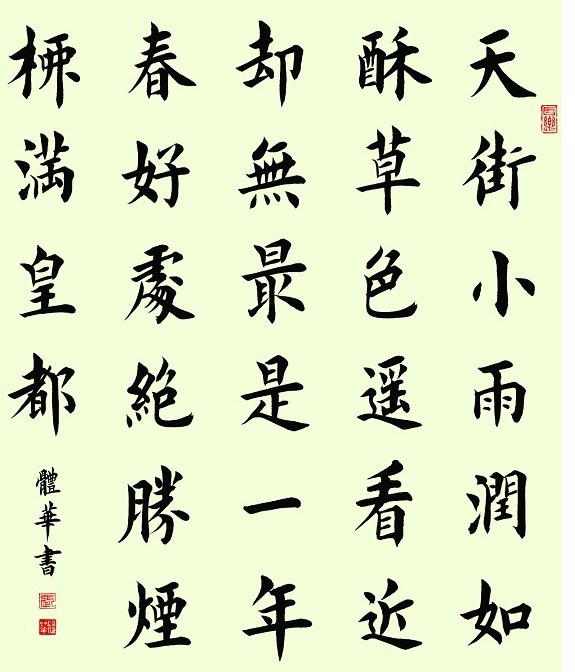 天街小雨潤如
酥草色遥看近
却無最是一年
春好處絶勝煙
柳満皇都
體華書